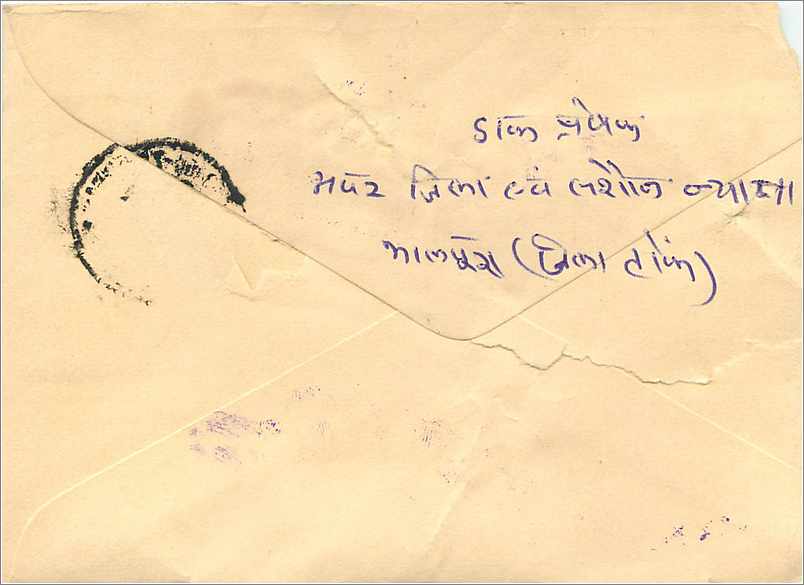 डाक प्रेषक
अपर जिला एवं सेशन न्याया
मालपुरा (जिला टोंक)